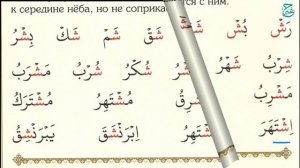 к середине нёба, но не соприка тся с ним.
رَشْ بُشْ شَقْ شَمْ شَكْ بِشْرُ
شِرْبُ شَهْرُ شُكْرُ شُرْبُ مَشْرَبُ
مَشْرِبُ مُشْتَهِرُ مُشْتَرَكُ
اِشْتَهَرَ اِبْرَنْشَقَ يَبْرَنْشِقُ